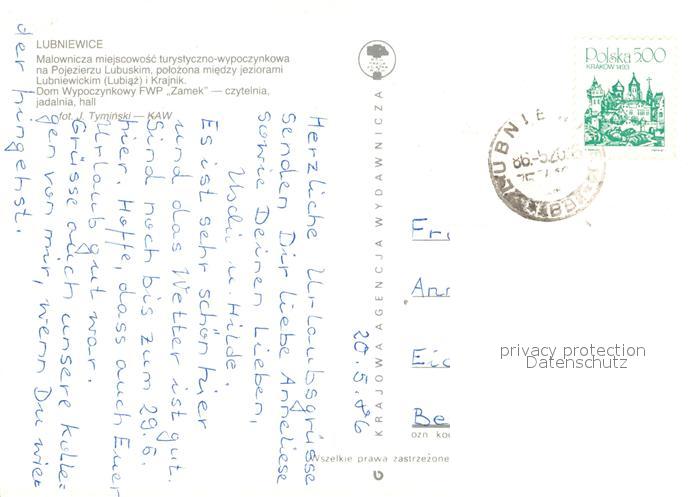 LUBNIEWICE
Malownicza miejscowość turystyczno-wypoczynkowa
na Pojezierzu Lubuskim, położona między jeziorami
Lubniewickim (Lubiąż) i Krajnik.
Dom Wypoczynkowy FWP „Zamek” — czytelnia,
jadalnia, hall
fot. J. Tymiński — KAW
20.5.86
Herzliche Urlaubsgrüsse
senden Dir liebe Anneliese
sowie Deinen Lieben,
u. Hilde.
Es ist sehr schön hier
und das Wetter ist gut.
Sind noch bis zum 29.5.
hier. Hoffe, dass auch Euer
Urlaub gut war.
Grüsse auch unsere Kolle=
gen von mir, wenn Du wie=
der hingehst.
KRAJOWA AGENCJA WYDAWNICZA
Polska 500
KRAKÓW 1493
LUBNIE
Fr
Ann
Ei
Be
ozn ko
Wszelkie prawa zastrzeżone
privacy protection
Datenschutz